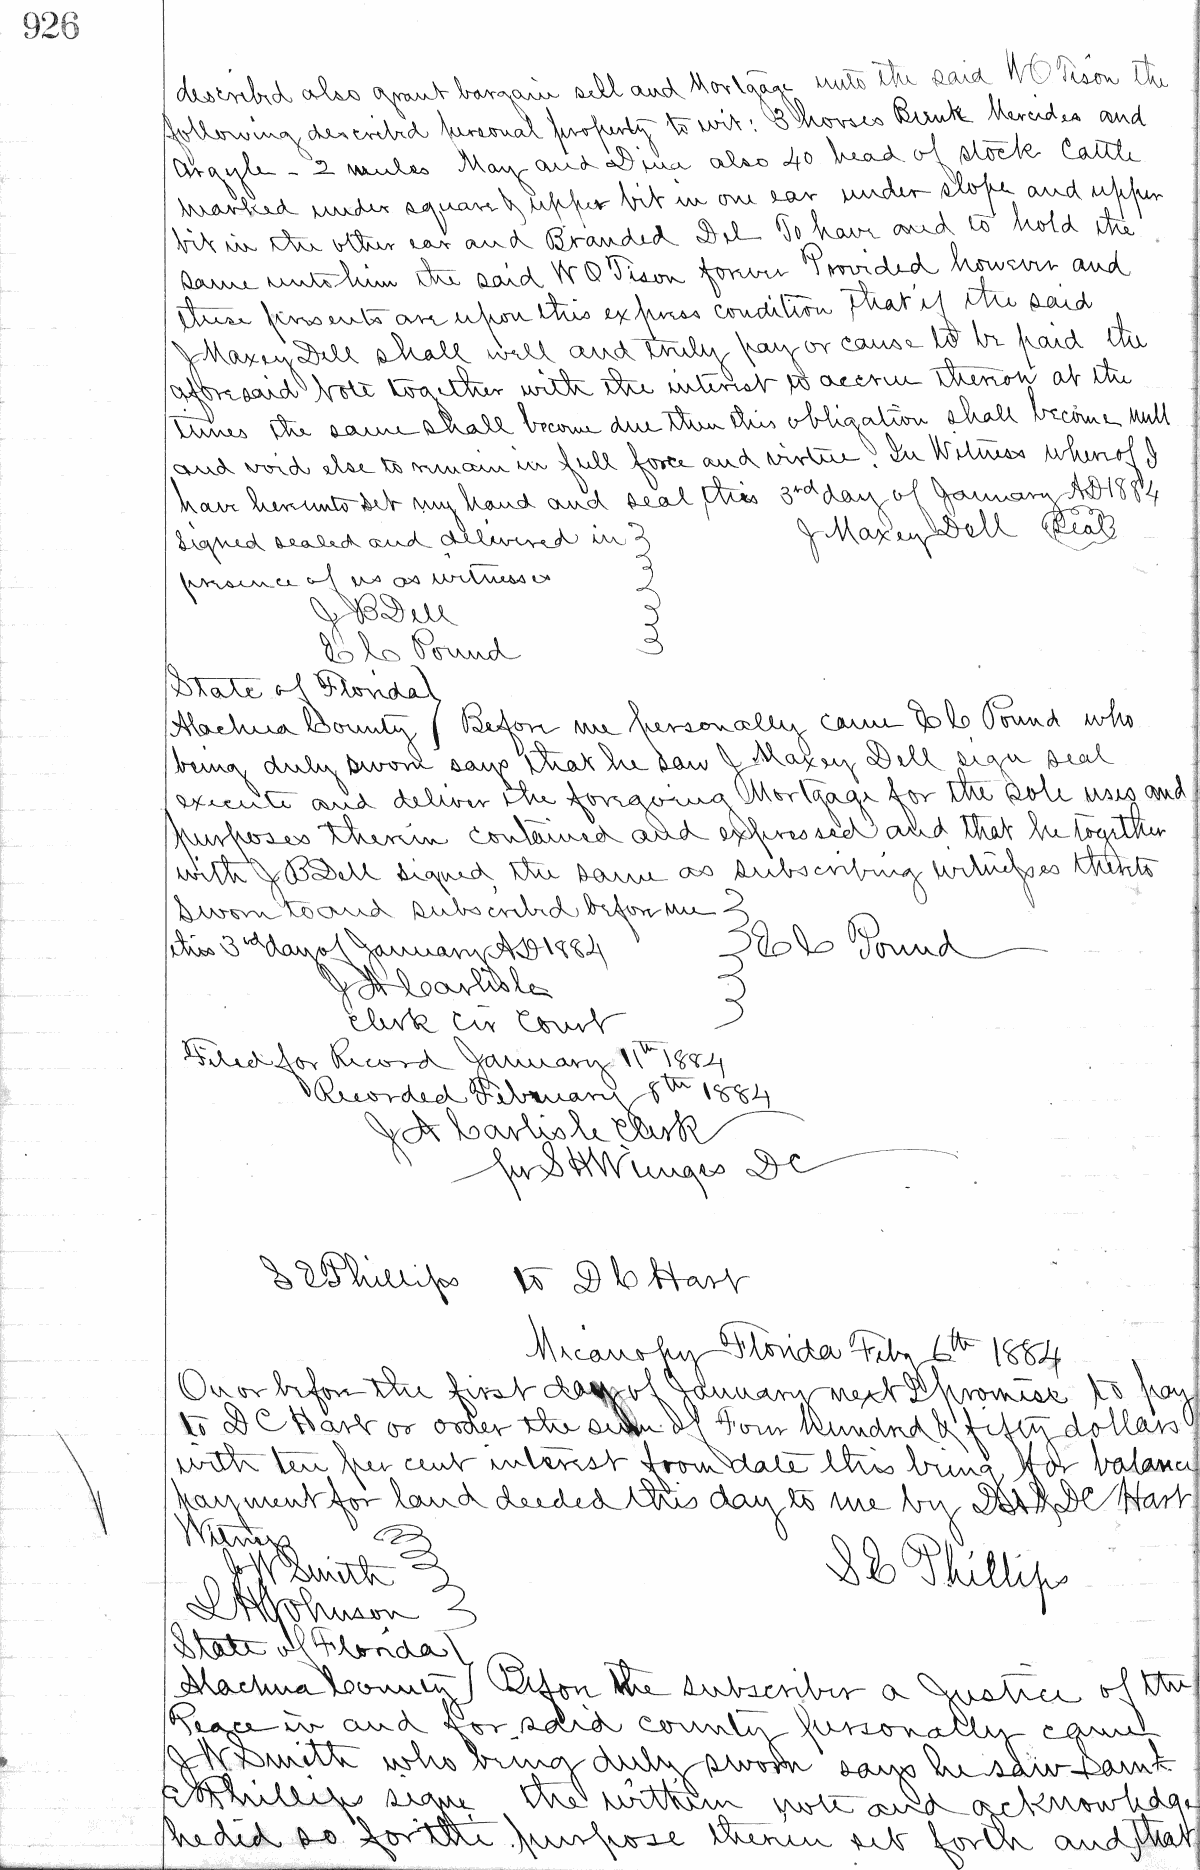 926
described also grant bargain sell and Mortgage unto the said W O Tison the
following described personal property to wit: 3 horses Bunk Mercides and
Argyle - 2 mules May and Dina also 40 head of stock Cattle
marked under square & upper bit in one ear under slope and upper
bit in the other ear and Branded Del To have and to hold the
same unto him the said W O Tison forever Provided however and
these presents are upon this express condition that if the said
J Maxey Dell shall well and truly pay or cause to be paid the
aforesaid Note together with the interest to accrue thereon at the
times the same shall become due then this obligation shall become null
and void else to remain in full force and virtue. In Witness whereof I
have hereunto set my hand and seal this 3rd day of January AD 1884
Signed sealed and delivered in J Maxey Dell Seal
presence of us as witnesses
J B Dell
E C Pound
State of Florida
Alachua County Before me personally came E C Pound who
being duly sworn says that he saw J Maxey Dell sign seal
execute and deliver the foregoing Mortgage for the sole uses and
purposes therein contained and expressed and that he together
with J B Dell signed the same as subscribing witnesses thereto
Sworn to and subscribed before me
this 3rd day of January AD 1884 E C Pound
J A Carlisle
Clerk Cir Court
Filed for Record January 11th 1884
Recorded February 8th 1884
J A Carlisle Clerk
per S H Wienges DC
S E Phillips to D C Hart
Micanopy Florida Feby 6th 1884
On or before the first day of January next I promise to pay
to D C Hart or order the sum of Four hundred & fifty dollars
with ten per cent interest from date this being for balance
payment for land deeded this day to me by D C Hart
Witness
J W Smith S E Phillips
L H Johnson
State of Florida
Alachua County Before the subscriber a Justice of the
Peace in and for said county personally came
J W Smith who being duly sworn says he saw Saml
E Phillips signe the within note and acknowledge
he did so for the purpose therein set forth and that